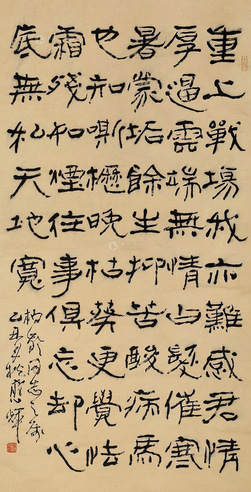 重上戰場我亦難感君情
厚逼雲端無情白髮催寒
暑蒙垢餘生抑苦酸病馬
也知嘶櫪晚枯葵更覺怯
霜殘如煙往事俱忘卻心
底無私天地寬
同志之屬
乙丑